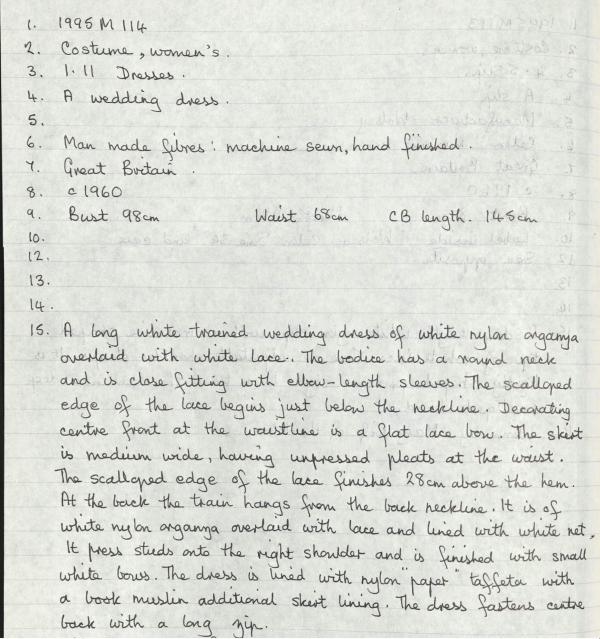 1. 1995 M 114
2. Costume, women's.
3. 1.11 Dresses.
4. A wedding dress.
5.
6. Man made fibres: machine sewn, hand finished.
7. Great Britain.
8. c 1960
9. Bust 98cm Waist 68cm CB length. 145cm
10.
12.
13.
14.
15. A long white trained wedding dress of white nylon organza
overlaid with white lace. The bodice has a round neck
and is close fitting with elbow-length sleeves. The scalloped
edge of the lace begins just below the neckline. Decorating
centre front at the waistline is a flat lace bow. The skirt
is medium wide, having unpressed pleats at the waist.
The scalloped edge of the lace finishes 28cm above the hem.
At the back the train hangs from the back neckline. It is of
white nylon organza overlaid with lace and lined with white net.
It press studs onto the right shoulder and is finished with small
white bows. The dress is lined with nylon "paper" taffeta with
a book muslin additional skirt lining. The dress fastens centre
back with a long zip.